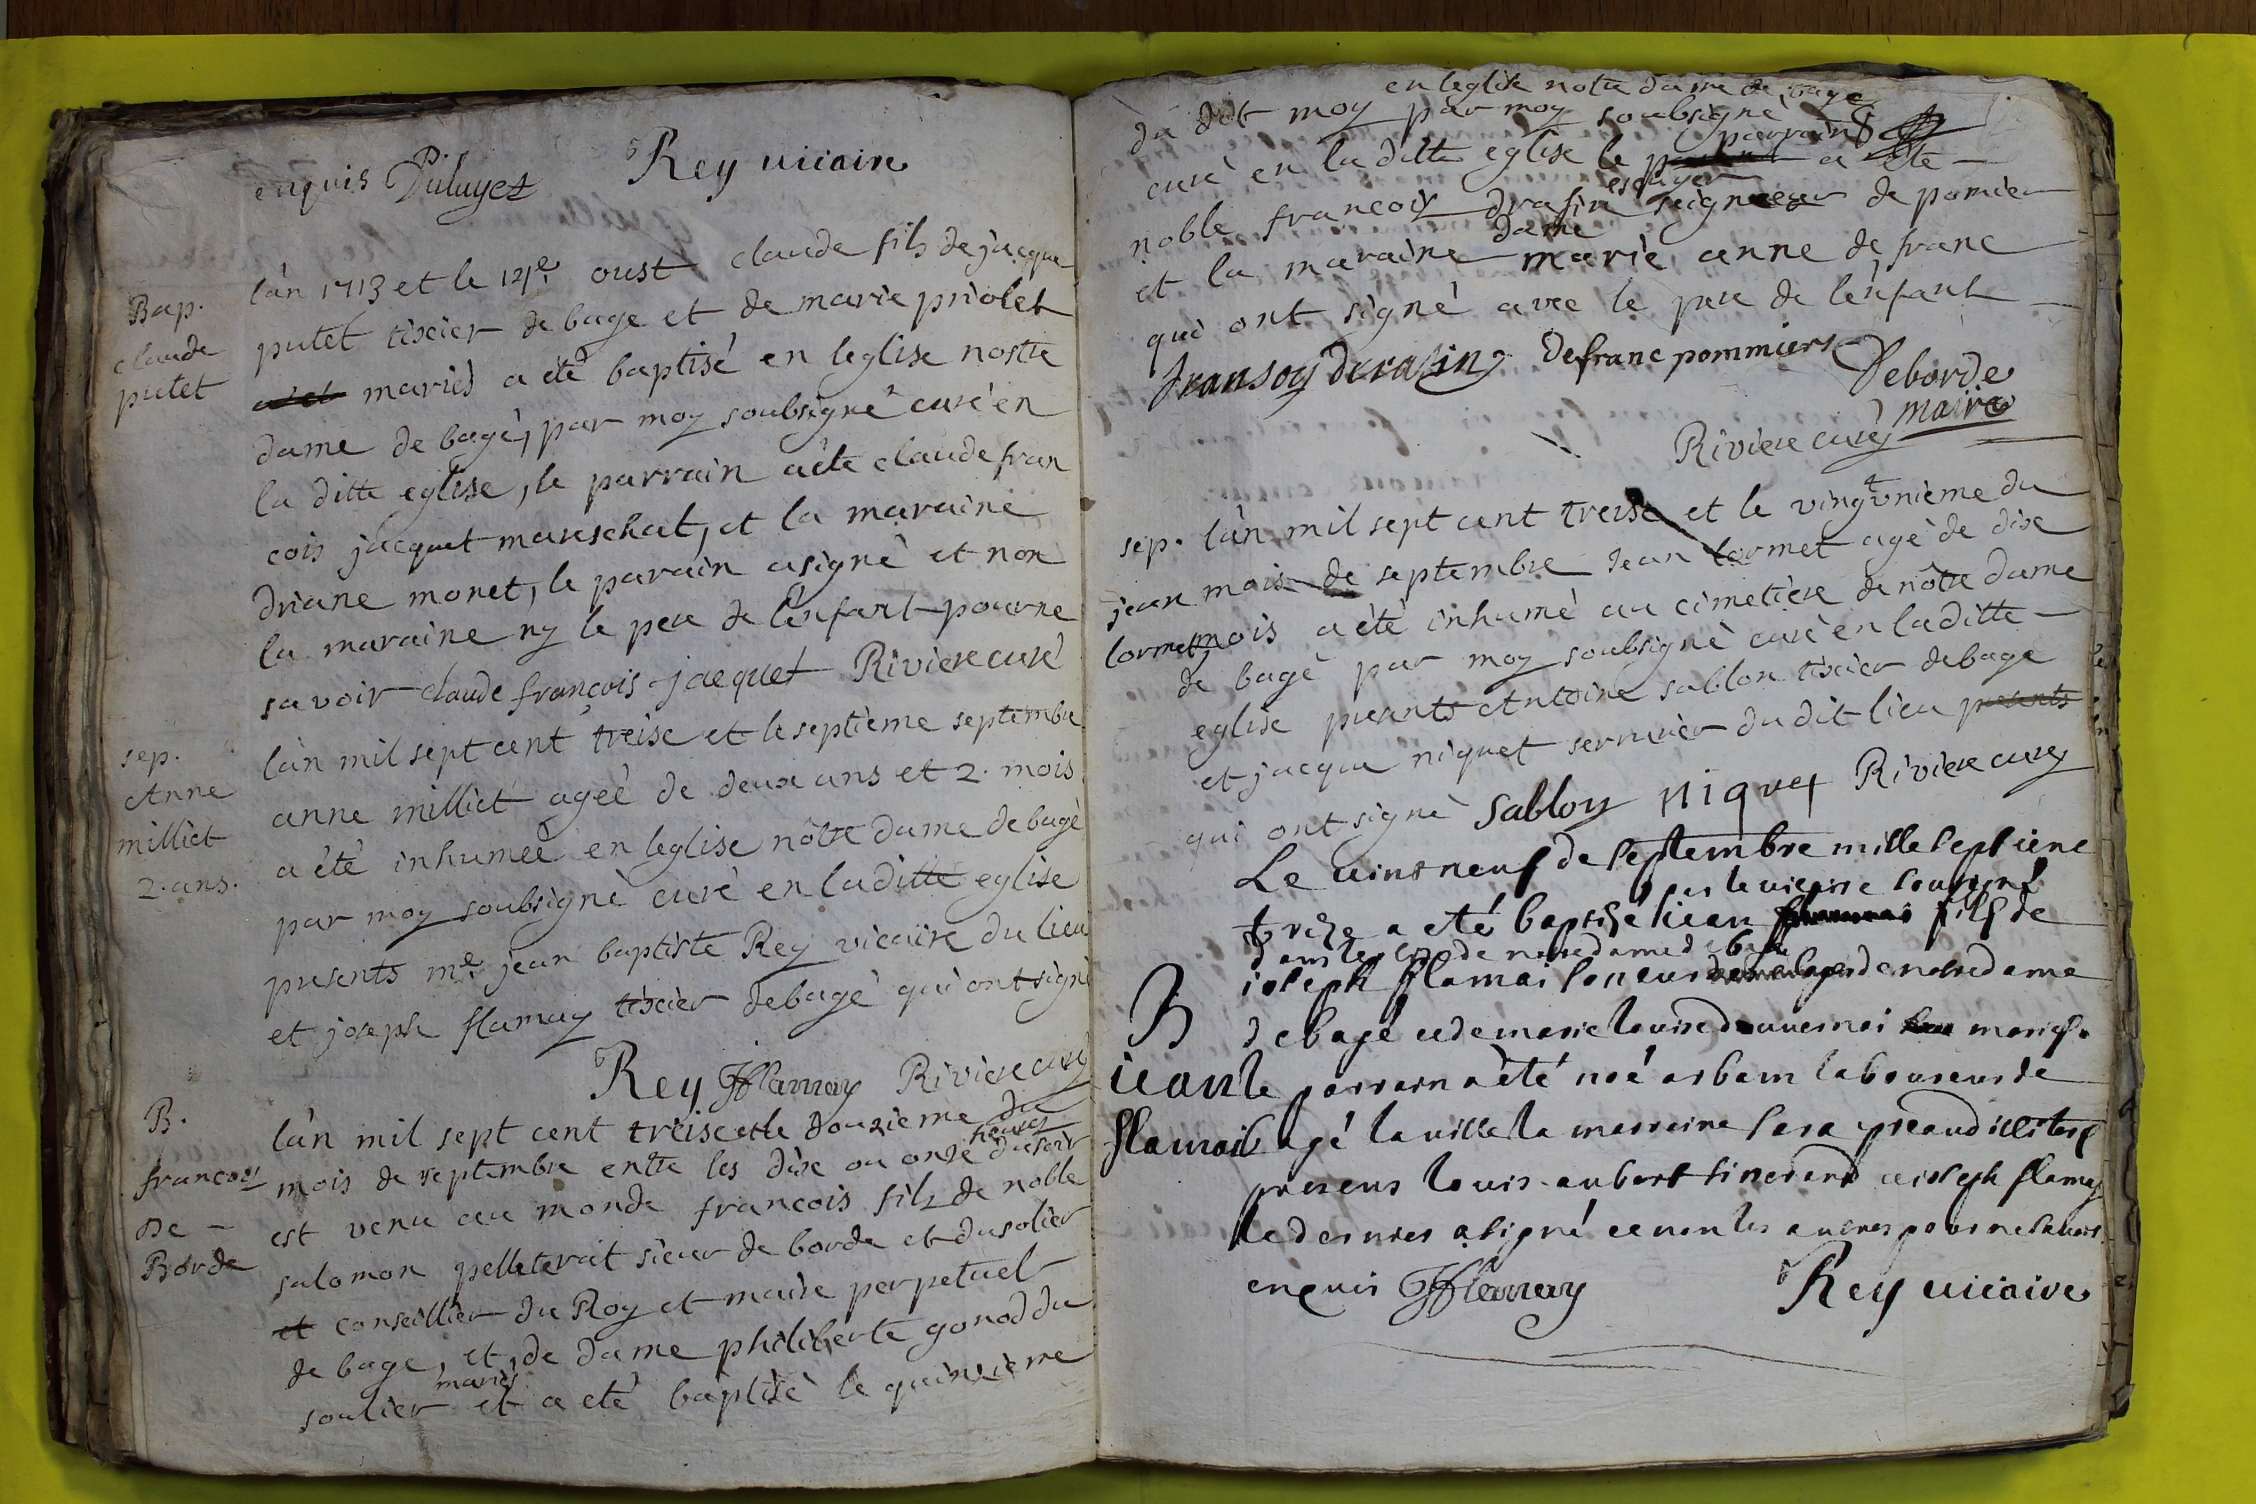 enquis Puluyet Rey vicaire
Bap.
claude
putet
làn 1713 et le 12e. oust claude fils de jacque
putet tixier de bage et de marie priolet
mariés a été baptisé en leglise nostre
dame de bagé, par moy soubsigné curé en
la ditte eglise, le parrain a été claude fran
cois jacquet mareschal, et la maraine
driane monet, le parain a signé et non
la maraine ny le pere de lènfant pour ne
savoir claude françois jacquet Riviere curé
sep.
Anne
milliet
2. ans.
làn mil sept cent treise et le septième septembre
anne milliet ageè de deux ans et 2. mois
a été inhumeè en leglise nôtre dame de bagé
par moy soubsigné curé en la ditte eglise
presents me. jean baptiste Rey vicaire du lieu
et joseph flamay tixier de bagé qui ont signé
Rey JFlamay Riviere curé
B.
francois
De
Borde
làn mil sept cent treise et le douzieme du
mois de septembre entre les dix ou onze heures du soir
est venu au monde francois fils de noble
salomon pelleterat sieur de borde et du solier
et conseillier du Roy et maire perpetuel
de bage, et de dame philiberte gonod du
soulier mariés et a eté baptisé le quinzième
en leglise notre dame de bage
du dit moy par moy soubsigné
curé en la ditte eglise le parrain a été
noble francois drasin escuyer seigneur de pomier
et la maraine dame marie anne de franc
qui ont signé avec le pere de lènfant
fransoy derasin Defranc pommiers Deborde
maire
Riviere curé
sep.
jean
lormet
làn mil sept cent treise et le vingt unième du
mois de septembre Jean lormet agé de dix
mois a été inhumé au cimetière de nôtre dame
de bagé par moy soubsigné curé en la ditte
eglise presents Antoine sablon tixier de bage
et jacque niquet serrurier du dit lieu presents
qui ont signé Sablon niquet Riviere curé
B
iean
flamai
Le vint neuf de septembre mille sept cent
treze a eté baptizé iean par le vicaire soussigné fils de
dans leglise de notre dame de bage
ioseph flamai soneur de notre dame
de bagé et de marie louise dauvernai mariés.
le parrain a èté noé arbain laboureur de
bagé la ville la marraine sara preaud illiterés
presens louis aubert tinerand et ioseph flamay
le dernier a signé et non les autres pour ne savoir
enquis JFlamay Rey vicaire